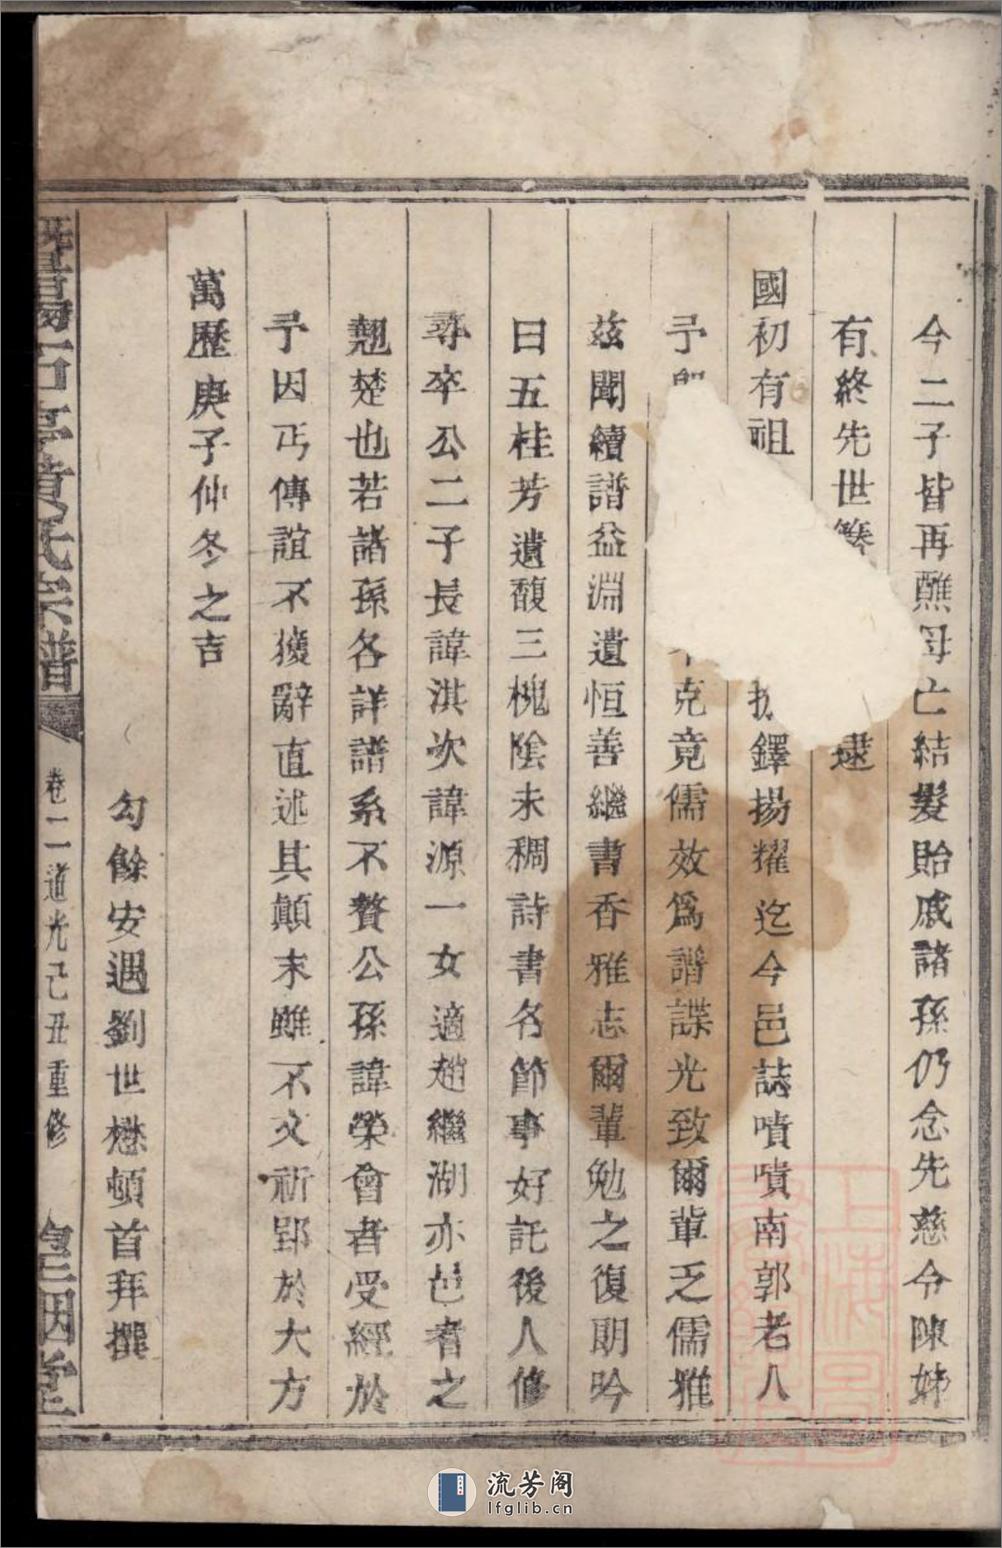 今二子皆再醮母亡結髮貽戚諸孫仍念先慈令陳姊
有終先世逑
國初有祖鐸揚耀迄今邑誌嘖嘖南郭老人
予克竟儒效為譜諜光致爾輩乏儒雅
茲聞續譜益淵遺恒善繼書香雅志爾輩勉之復期吟
曰五桂芳遺馥三槐陰未稠詩書名節事好託後人修
尋卒公二子長諱淇次諱源一女適趙繼湖亦邑耆之
翹楚也若諸孫各詳譜系不贅公孫諱榮會者受經於
予因丐傳誼不獲辭直述其顛末雖不文祈郢於大方
萬歷庚子仲冬之吉
勾餘安遇劉世懋頓首拜撰
暨陽石亭黃氏宗譜 卷二 道光己丑重修
流芳阁
lfglib.cn